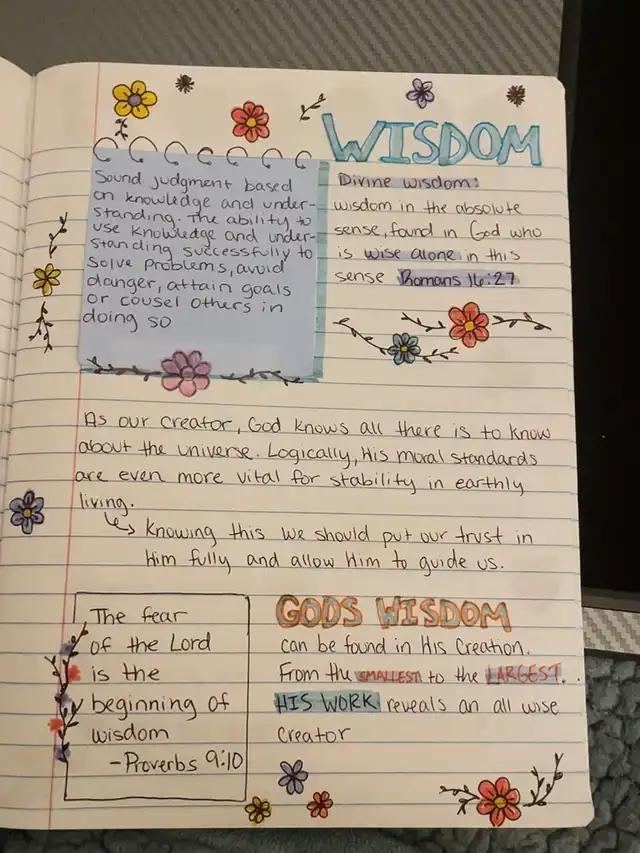 WISDOM
Sound judgment based
on knowledge and under-
standing. The ability to
use knowledge and under-
standing successfully to
solve problems, avoid
danger, attain goals
or cousel others in
doing so
Divine wisdom:
wisdom in the absolute
sense, found in God who
is wise alone in this
sense Romans 16:27
As our creator, God knows all there is to know
about the universe. Logically, His moral standards
are even more vital for stability in earthly
living.
Knowing this we should put our trust in
Him fully and allow Him to guide us.
The fear
of the Lord
is the
beginning of
wisdom
-Proverbs 9:10
GODS WISDOM
can be found in His Creation.
From the SMALLEST to the LARGEST.
HIS WORK reveals an all wise
Creator